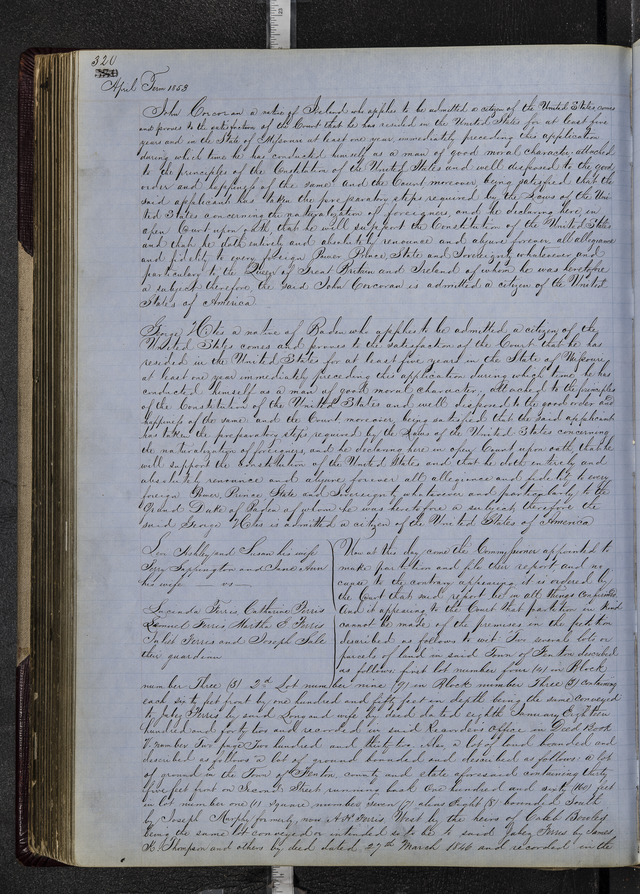 320
April Term 1853
John Corcoran a native of Ireland who applies to be admitted a citizen of the United States, comes
and proves to the satisfaction of the Court that he has resided in the United States for at least five
years and in the State of Missouri at least one year immediately preceding this application
during which time he has conducted himself as a man of good moral character, attached
to the principles of the Constitution of the United States and well disposed to the good
order and happiness of the same and the Court moreover being satisfied that the
said applicant has taken the preparatory steps required by the Laws of the Uni-
ted States concerning the naturalization of foreigners, and he declaring here in
open Court upon oath that he will support the Constitution of the United States
and that he doth entirely and absolutely renounce and abjure forever all allegiance
and fidelity to every foreign Power, Prince, State and Sovereignty whatsoever and
particularly to the Queen of Great Britain and Ireland of whom he was heretofore
a subject therefore the said John Corcoran is admitted a citizen of the United
States of America
George a native of Baden who applies to be admitted a citizen of the
United States comes and proves to the satisfaction of the Court that he has
resided in the United States for at least five years in the State of Missouri
at least one year immediately preceding this application during which time he has
conducted himself as a man of good moral character, attached to the principles
of the Constitution of the United States and well disposed to the good order and
happiness of the same and the Court, moreover being satisfied that the said applicant
has taken the preparatory steps required by the Laws of the United States concerning
the naturalization of foreigners, and he declaring here in open Court upon oath that he
will support the Constitution of the United States and that he doth entirely and
absolutely renounce and abjure forever all allegiance and fidelity to every
foreign Power, Prince State and Sovereignty whatsoever and particularly to the
Grand Duke of Baden of whom he was heretofore a subject therefore the
said George is admitted a citizen of the United States of America
Ashby and Susan his wife
Sappington and Jane Ann
his wife — vs —
Lucinda Ferris Catherine Ferris
Samuel Ferris Martha E Ferris
Juliet Ferris and Joseph Sale
their guardian
Now at this day come the Commissioner appointed to
make partition and file their report and no
cause to the contrary appearing it is ordered by
the Court that said report be in all things confirmed
And it appearing to the Court that partition in kind
cannot be made of the premises in the petition
described as follows to wit Two several lots or
parcels of land in said Town of Fenton described
as follows first lot number four (4) in Block
number Three (3) 2nd Lot number nine (9) in Block number Three (3) containing
each sixty feet front by one hundred and fifty feet in depth being the same conveyed
to Jabez Ferris by said Long and wife by deed dated eighth January Eighteen
hundred and forty two and recorded in said Recorders Office in Deed Book
number Two page Two hundred and thirty two. Also a lot of land bounded and
described as follows a lot of ground bounded and described as follows: a lot
of ground in the Town of Fenton, county and state aforesaid containing thirty
five feet front on Second Street running back One hundred and sixty (160) feet
in lot number one (1) Square number Seven (7) bounded South
by Joseph Murphy formerly now A H Ferris West by the heirs of Caleb Bowles
being the same lot conveyed or intended so to be to said Jabez Ferris by James
Thompson and others by deed dated 27th March 1846 and recorded in the